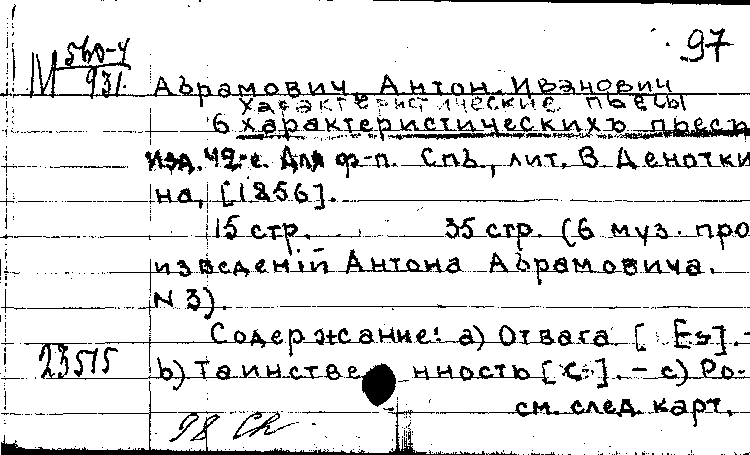 97
М 560-4
931.
Абрамович, Антон Иванович
Характеристические пьесы
6 характеристическихъ пьесъ
изд. 42-е. Для ф-п. Спб., лит. В Деноткина, [1856].
15 стр. 35 стр. (6 муз. про
изведенiй Антона Абрамовича.
N 3).
Содержание: a) Отвага [Es]. -
23515
b) Таинственность [C]. - c) Ро-
см. след. карт.
98